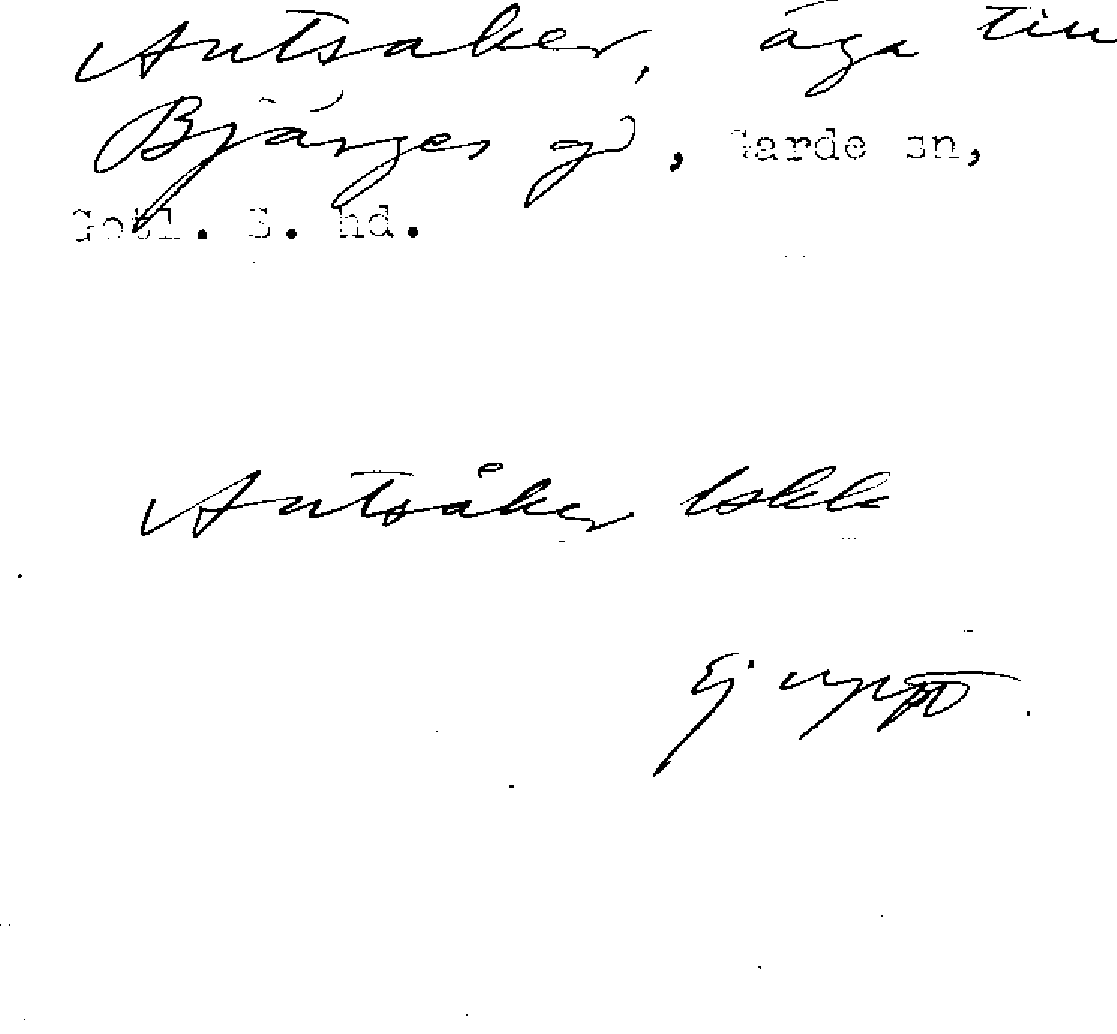 Antsaker, äga till
Bjärges gd, Garde sn,
Gotl. S. hd.
Antsåker lskk
Ej uppt.